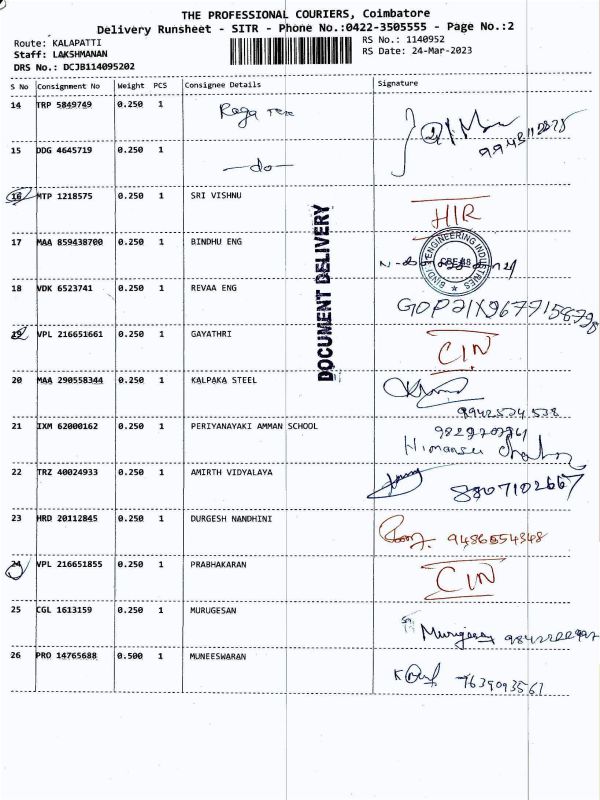 THE PROFESSIONAL COURIERS, Coimbatore
Delivery Runsheet - SITR - Phone No.:0422-3505555 - Page No.:2
Route: KALAPATTI RS No.: 1140952
Staff: LAKSHMANAN RS Date: 24-Mar-2023
DRS No.: DCJB114095202
S No Consignment No Weight PCS Consignee Details Signature
14 TRP 5849749 0.250 1 Raga
15 DDG 4645719 0.250 1 —do—
16 MTP 1218575 0.250 1 SRI VISHNU HIR
17 MAA 859438700 0.250 1 BINDHU ENG
ENGINEERING INDUSTRIES
18 VDK 6523741 0.250 1 REVAA ENG
19 VPL 216651661 0.250 1 GAYATHRI CIN
20 MAA 290558344 0.250 1 KALPAKA STEEL
21 IXM 62000162 0.250 1 PERIYANAYAKI AMMAN SCHOOL
22 TRZ 40024933 0.250 1 AMIRTH VIDYALAYA 8807102667
23 HRD 20112845 0.250 1 DURGESH NANDHINI 9486554348
24 VPL 216651855 0.250 1 PRABHAKARAN CIN
25 CGL 1613159 0.250 1 MURUGESAN
26 PRO 14765688 0.500 1 MUNEESWARAN 7639093561
DOCUMENT DELIVERY